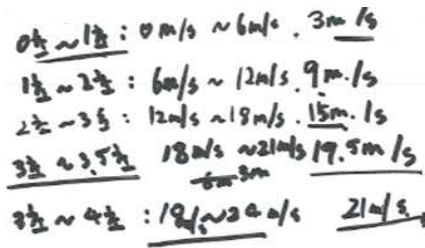 0초~1초 : 0m/s ~6m/s. 3m/s
1초~2초 : 6m/s ~ 12m/s. 9m/s
2초~3초 : 12m/s ~18m/s. 15m/s
3초~3.5초 18m/s ~21m/s 19.5m/s
3m
3초~4초 : 18m/s~24m/s 21m/s